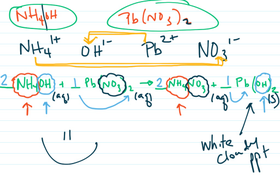 NH₄OH Pb(NO₃)₂
NH₄¹⁺ OH¹⁻ Pb²⁺ NO₃¹⁻
2 NH₄OH (aq) + 1 Pb(NO₃)₂ (aq) → 2 NH₄NO₃ (aq) + 1 Pb(OH)₂ (s)
11
White
cloudy
ppt